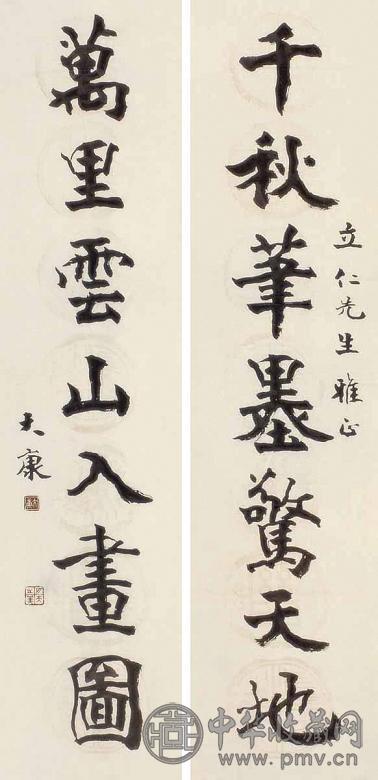 千秋筆墨驚天地
立仁先生雅正
萬里雲山入畫圖
大康
中华收藏网
www.pmv.cn